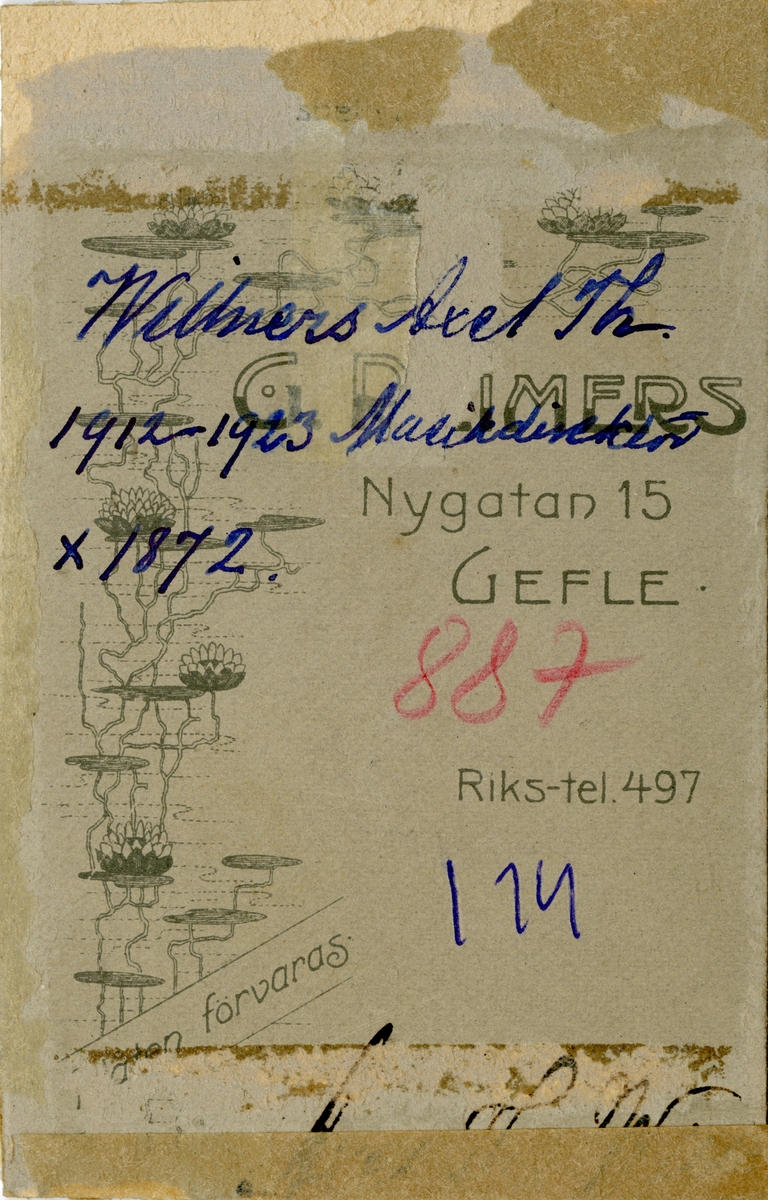 Willners Axel Th.
G. R IMERS
1912-1923 Musikdirektör
Nygatan 15
x 1872.
GEFLE.
887
Riks-tel. 497
114
förvaras.